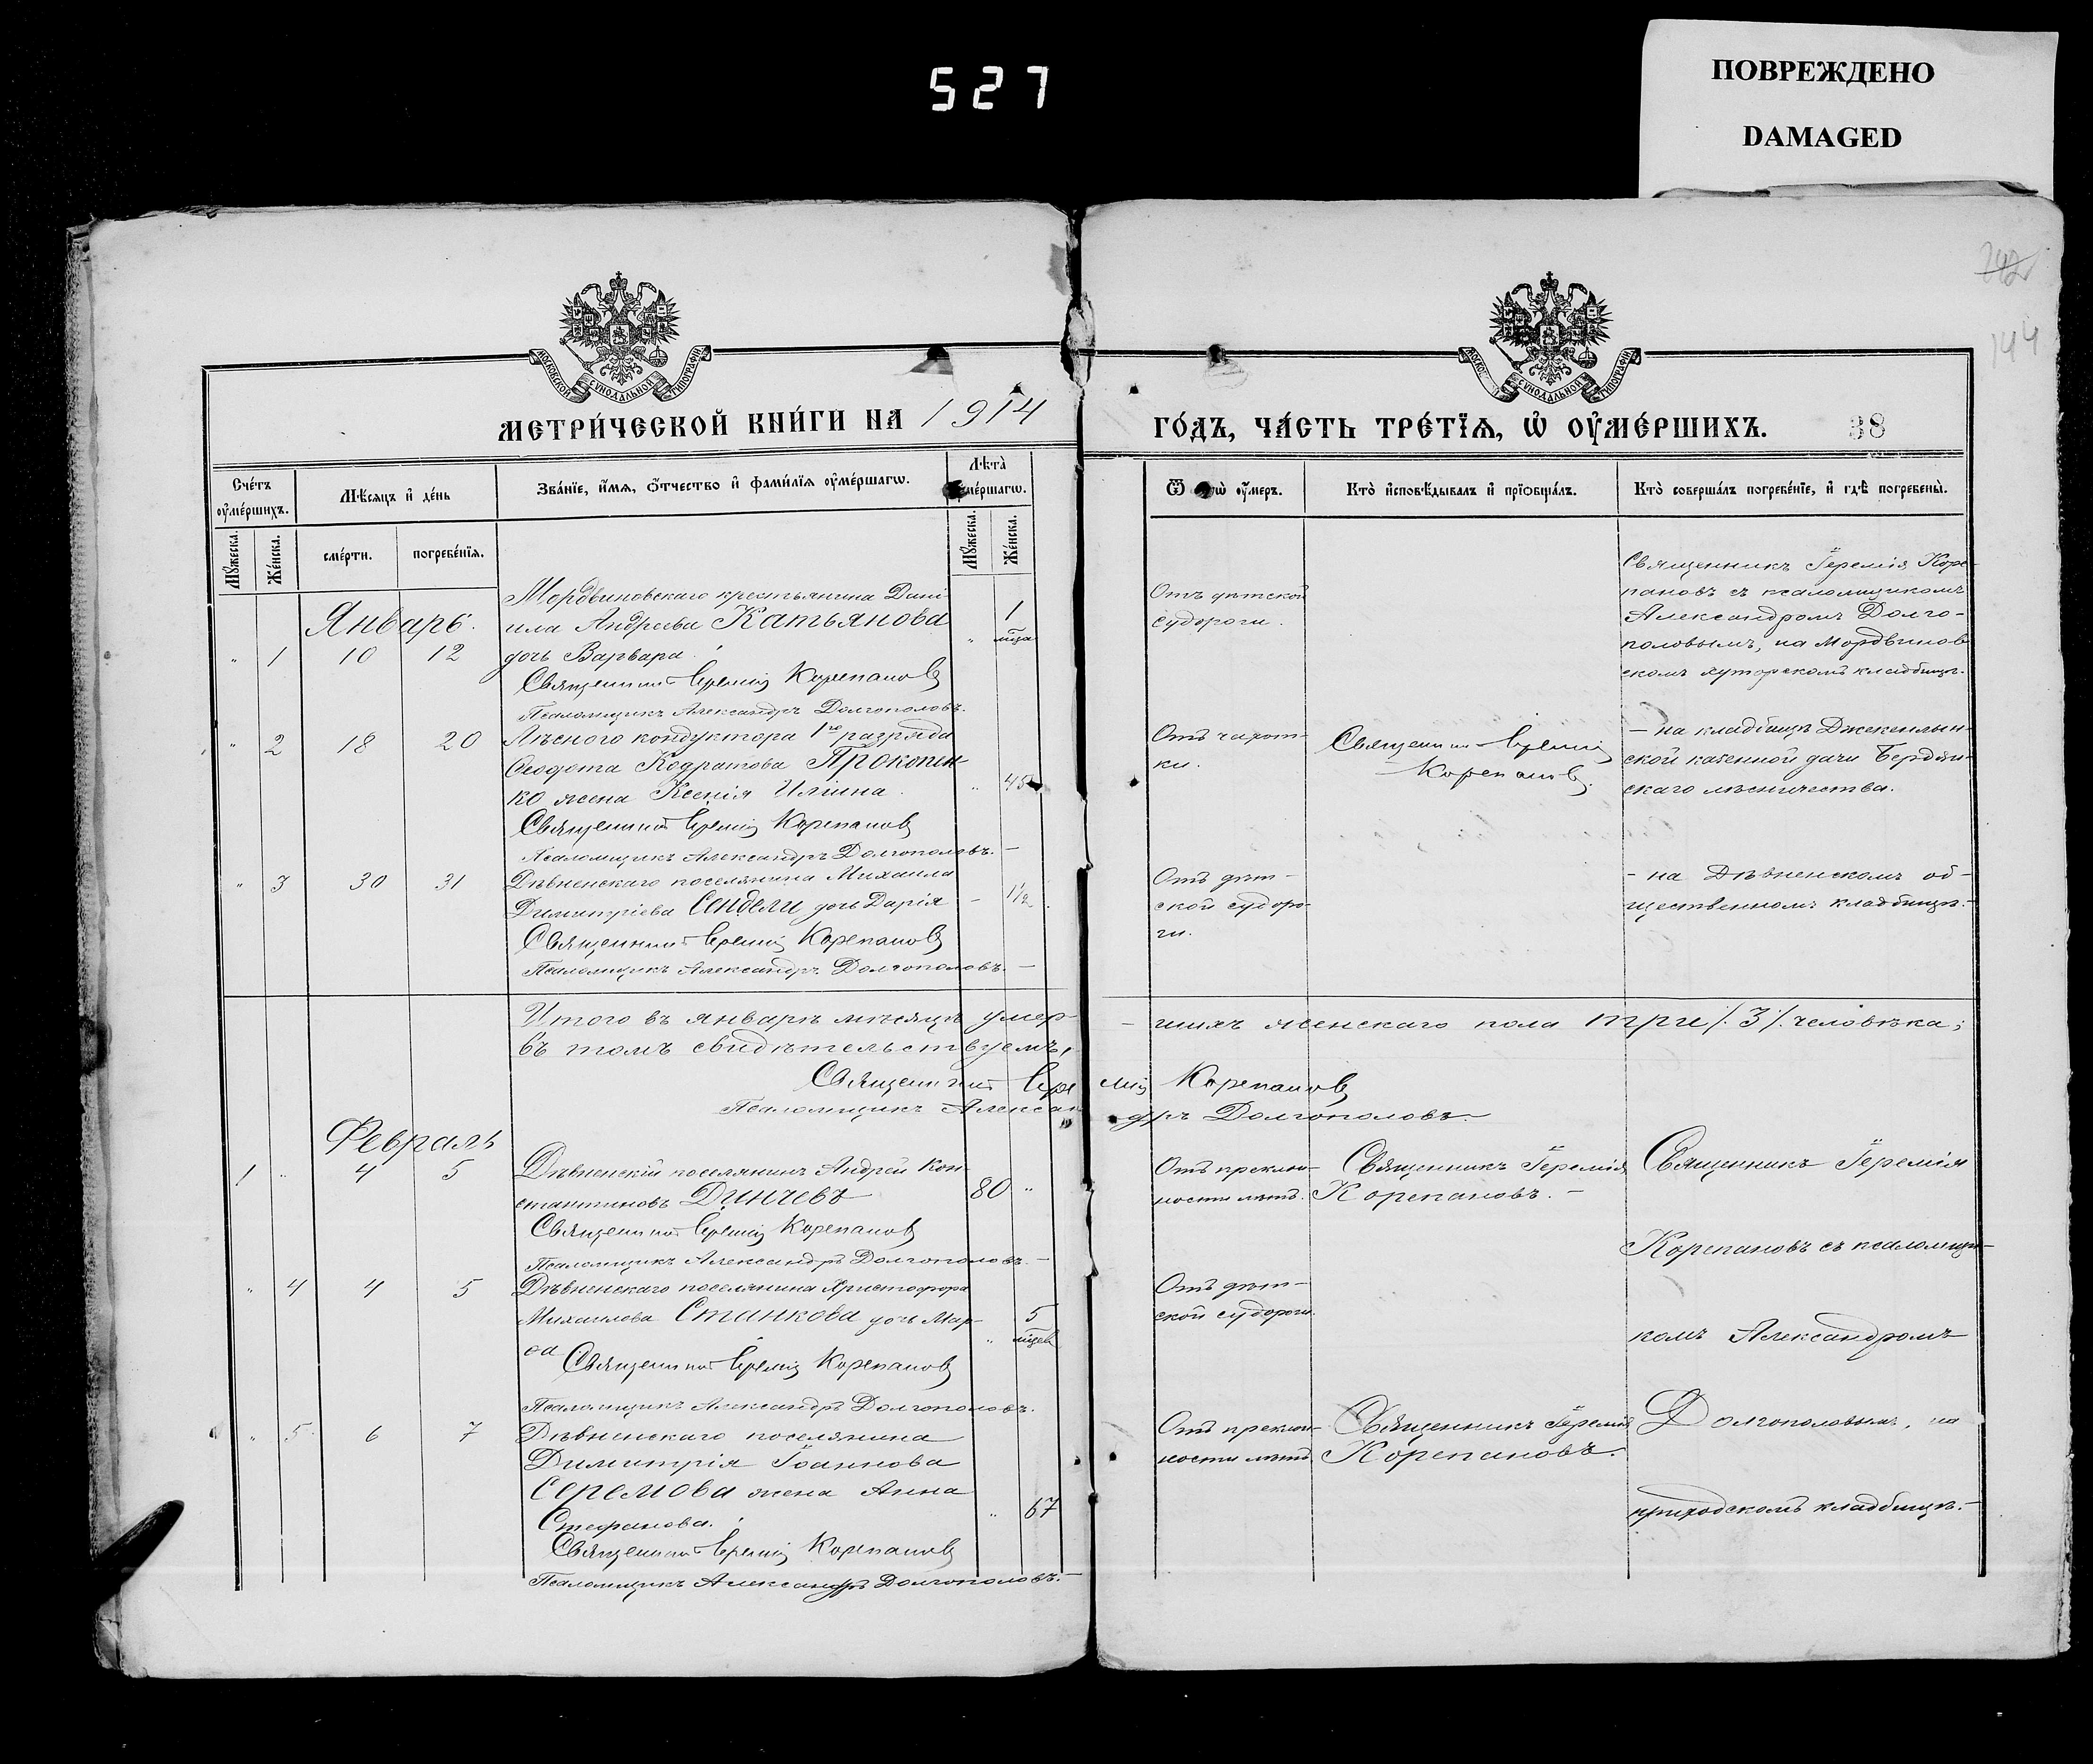 527
ПОВРЕЖДЕНО
DAMAGED
242
144
МОСКОВСКОЙ СѴНОДАЛЬНОЙ ТИПОГРАФІИ
СѴНОДАЛЬНОЙ ТИПОГРАФІИ
МЕТРИ́ЧЕСКОЙ КНИ́ГИ НА 1914
ГО́ДЪ, ЧА́СТЬ ТРЕ́ТЇѦ, Ѡ҆ ОУ҆МЕ́РШИХЪ. 38
Сче́тъ оу҆ме́ршихъ.
Мѣ́сяцъ и҆ де́нь
Зва́нїе, и҆́мѧ, ѻ҆́тчество и҆ фами́лїѧ оу҆ме́ршагѡ.
Лѣ́та̀ оу҆ме́ршагѡ.
Ѿ чегѡ̀ оу҆́меръ.
Кто̀ и҆сповѣ́дывалъ и҆ прїѡбща́лъ.
Кто̀ соверша́лъ погребе́нїе, и҆ гдѣ̀ погребены̀.
Мꙋ́жеска.
Же́нска.
сме́рти.
погребе́нїѧ.
Мꙋ́жеска.
Же́нска.
Январь.
" 1 10 12
Мордвиновскаго крестьянина Дани
ила Андреева Катьянова
дочь Варвара.
" 1 мца
Священникъ Іеремія Корепановъ
Псаломщикъ Александръ Долгополовъ.
Отъ дѣтской
судороги.
Священникъ Іеремія Коре-
пановъ съ псаломщикомъ
Александромъ Долго-
половымъ, на Мордвинов
скомъ хуторскомъ кладбищѣ.
" 2 18 20
Лѣсного кондуктора 1го разряда
Ѳеодота Кодратова Прокопен
ко жена Ксенія Ильина.
" 45
Священникъ Іеремія Корепановъ
Псаломщикъ Александръ Долгополовъ.
Отъ чахот-
ки.
Священникъ Іеремія
Корепановъ.
- на кладбищѣ Джекенлын-
ской казенной дачи Бердян-
скаго лѣсничества.
" 3 30 31
Дѣвненскаго поселянина Михаила
Димитріева Сендели дочь Дарія
- 1½
Священникъ Іеремія Корепановъ
Псаломщикъ Александръ Долгополовъ.
Отъ дѣт-
ской судоро-
ги.
- на Дѣвненскомъ об-
щественномъ кладбищѣ.
Итого въ январѣ мѣсяцѣ умер-
- шихъ женскаго пола три /.3/. человѣка;
въ томъ свидѣтельствуемъ,
Священникъ Іеремія Корепановъ
Псаломщикъ Александръ Долгополовъ.
Февраль
1 " 4 5
Дѣвненскій поселянинъ Андрей Кон-
стантиновъ Динчевъ
80 "
Священникъ Іеремія Корепановъ
Псаломщикъ Александръ Долгополовъ.
Отъ преклон-
ности лѣтъ.
Священникъ Іеремія
Корепановъ.
Священникъ Іеремія
Корепановъ съ псаломщи-
комъ Александромъ
Долгополовымъ, на
приходскомъ кладбищѣ.
" 4 4 5
Дѣвненскаго поселянина Христофора
Михаилова Станкова дочь Мар-
ѳа
" 5 мцев
Священникъ Іеремія Корепановъ
Псаломщикъ Александръ Долгополовъ.
Отъ дѣт-
ской судороги.
" 5 6 7
Дѣвненскаго поселянина
Димитрія Іоаннова
Серемова жена Анна
Стефанова.
" 67
Священникъ Іеремія Корепановъ
Псаломщикъ Александръ Долгополовъ.
Отъ преклон-
ности лѣтъ
Священникъ Іеремія
Корепановъ.